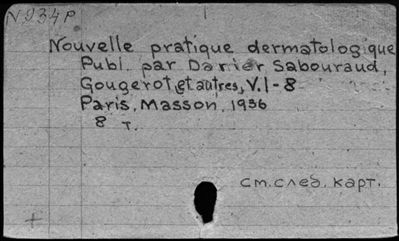 N934P
Nouvelle pratique dermatologique
Publ. par Darier, Sabouraud,
Gougerot, et autres, V. I - 8
Paris, Masson, 1936
8 т.
см. след. карт.
+